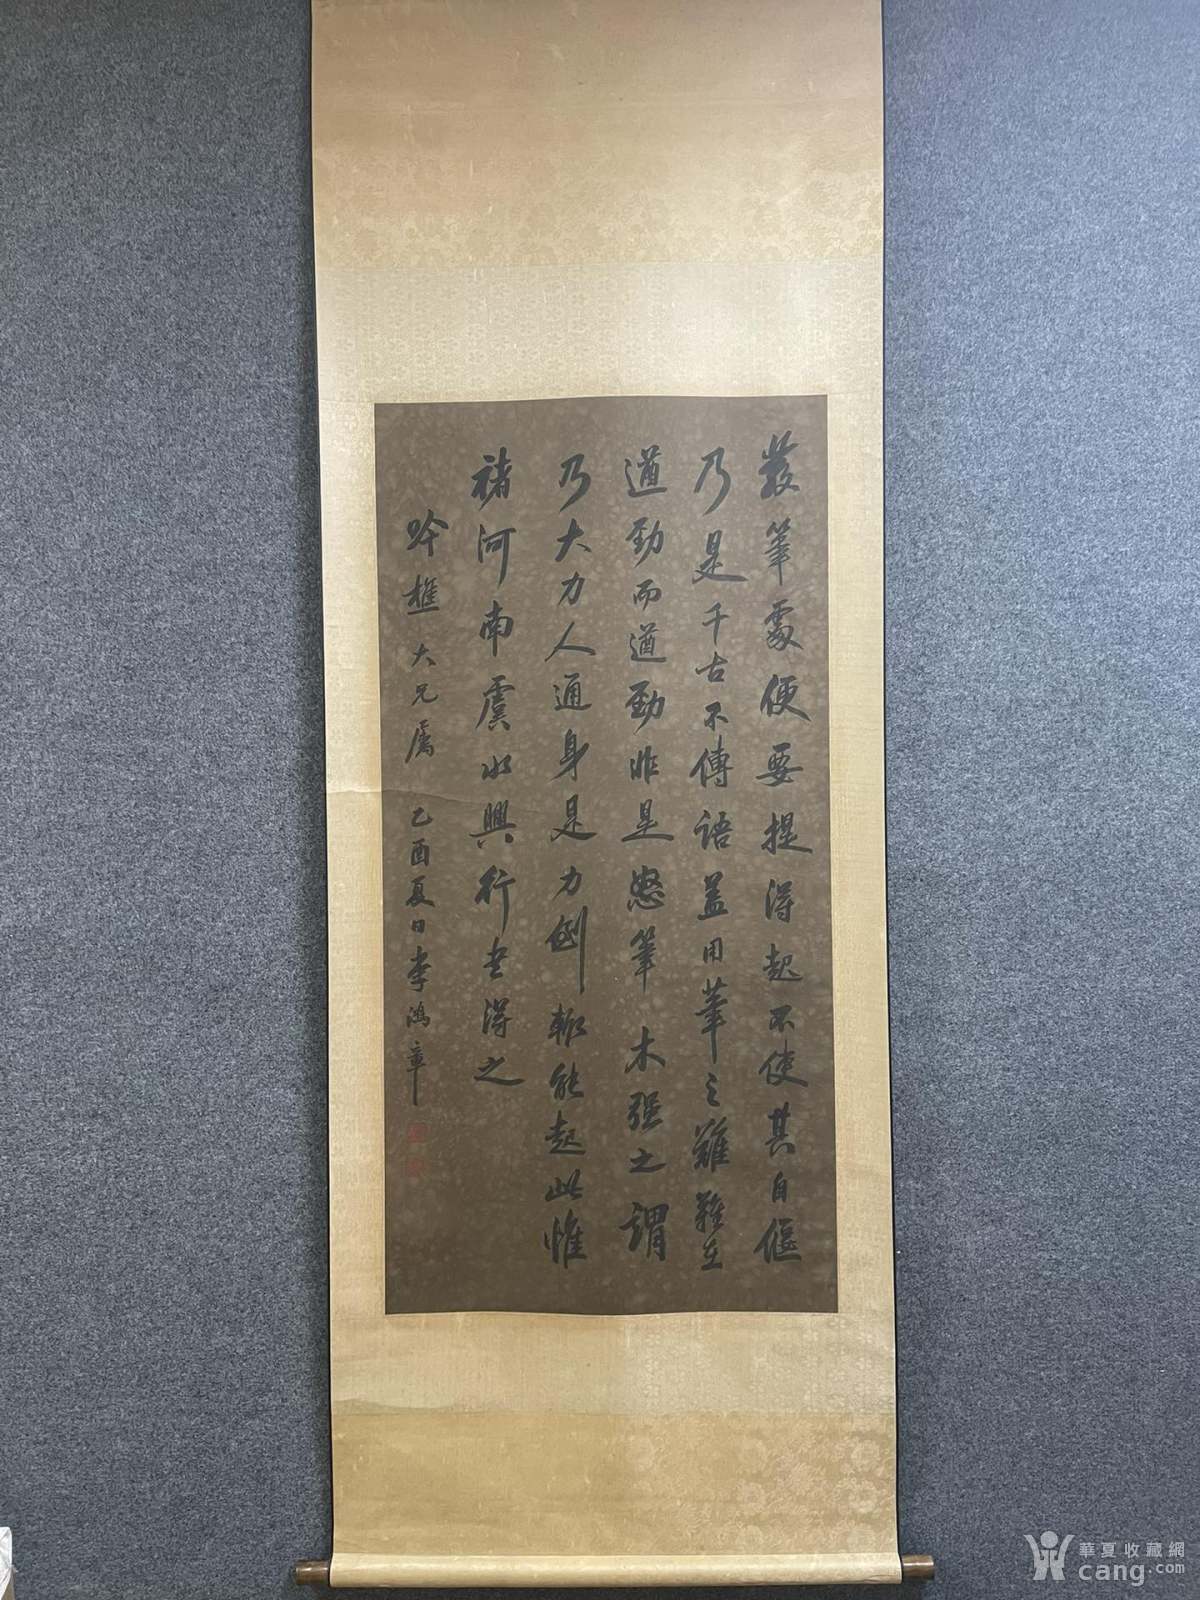 發筆處便要提得起不使其自偃
乃是千古不傳語蓋用筆之難難在
遒勁而遒勁非是怒筆木强之謂
乃大力人通身是力倒輒能起此惟
褚河南虞永興行書得之
吟樵大兄屬 乙酉夏日李鴻章
華夏收藏網
cang.com